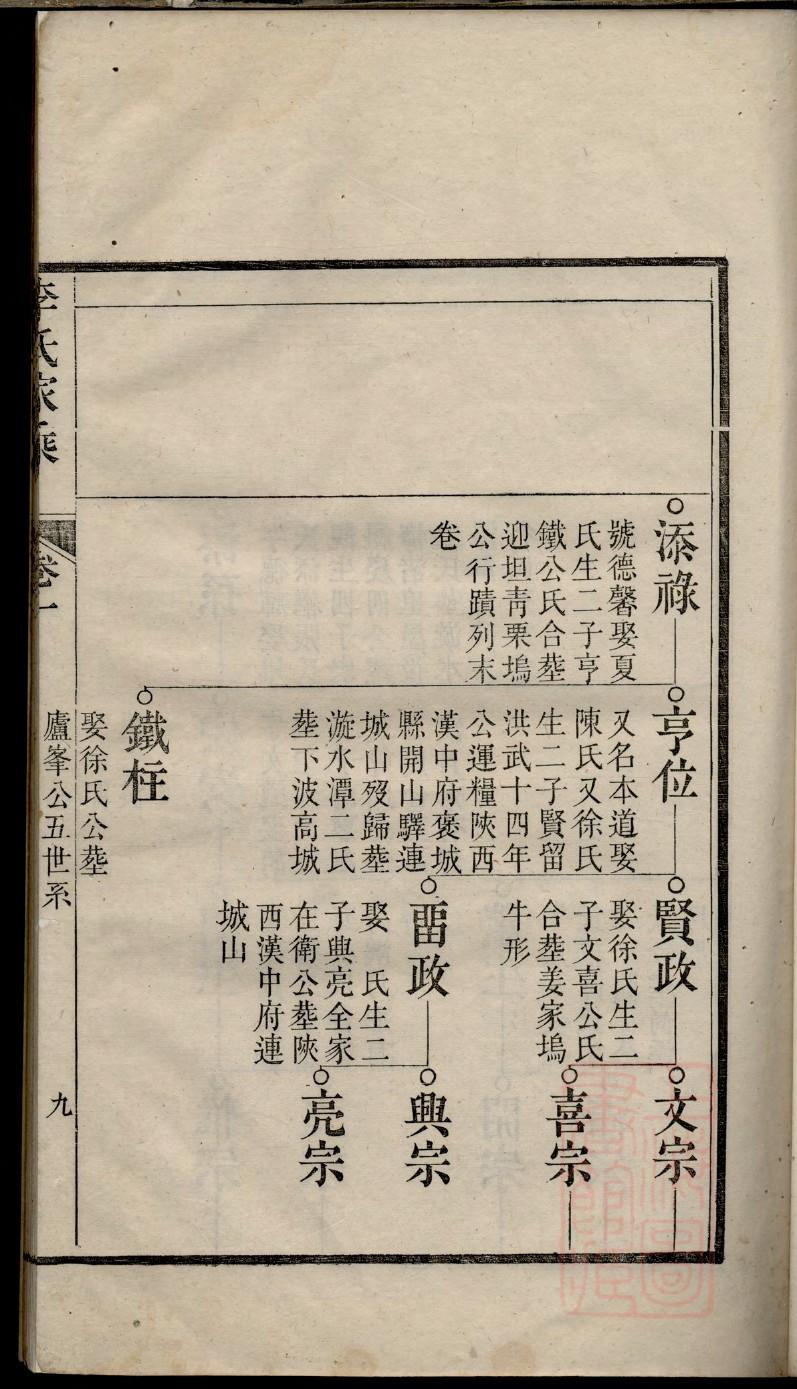 添祿
號德馨娶夏
氏生二子亨
鐵公氏合塟
迎坦靑栗塢
公行蹟列末
卷
亨位
又名本道娶
陳氏又徐氏
生二子賢留
洪武十四年
公運糧陝西
漢中府褒城
縣開山驛連
城山歿歸塟
漩水潭二氏
塟下波高城
鐵柱
娶徐氏公塟
賢政
娶徐氏生二
子文喜公氏
合塟姜家塢
牛形
畱政
娶　氏生二
子興亮全家
在衛公塟陝
西漢中府連
城山
文宗
喜宗
興宗
亮宗
李氏家乘
卷一
廬峯公五世系
九